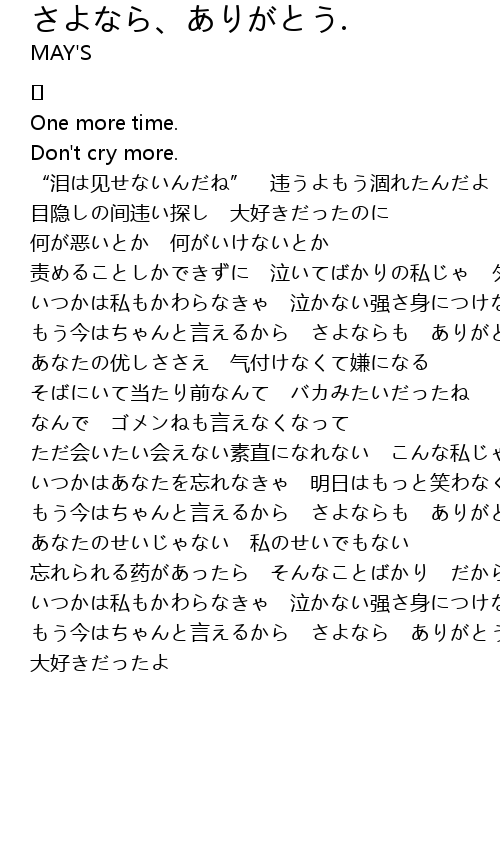 さよなら、ありがとう.
MAY'S
One more time.
Don't cry more.
“泪は见せないんだね”　違うよもう涸れたんだよ
目隠しの间违い探し　大好きだったのに
何が恶いとか　何がいけないとか
责めることしかできずに　泣いてばかりの私じゃ
いつかは私もかわらなきゃ　泣かない强さ身につけな
もう今はちゃんと言えるから　さよならも　ありがと
あなたの优しささえ　気付けなくて嫌になる
そばにいて当たり前なんて　バカみたいだったね
なんで　ゴメンねも言えなくなって
ただ会いたい会えない素直になれない　こんな私じゃ
いつかはあなたを忘れなきゃ　明日はもっと笑わなく
もう今はちゃんと言えるから　さよならも　ありがと
あなたのせいじゃない　私のせいでもない
忘れられる药があったら　そんなことばかり　だから
いつかは私もかわらなきゃ　泣かない强さ身につけな
もう今はちゃんと言えるから　さよなら　ありがとう
大好きだったよ